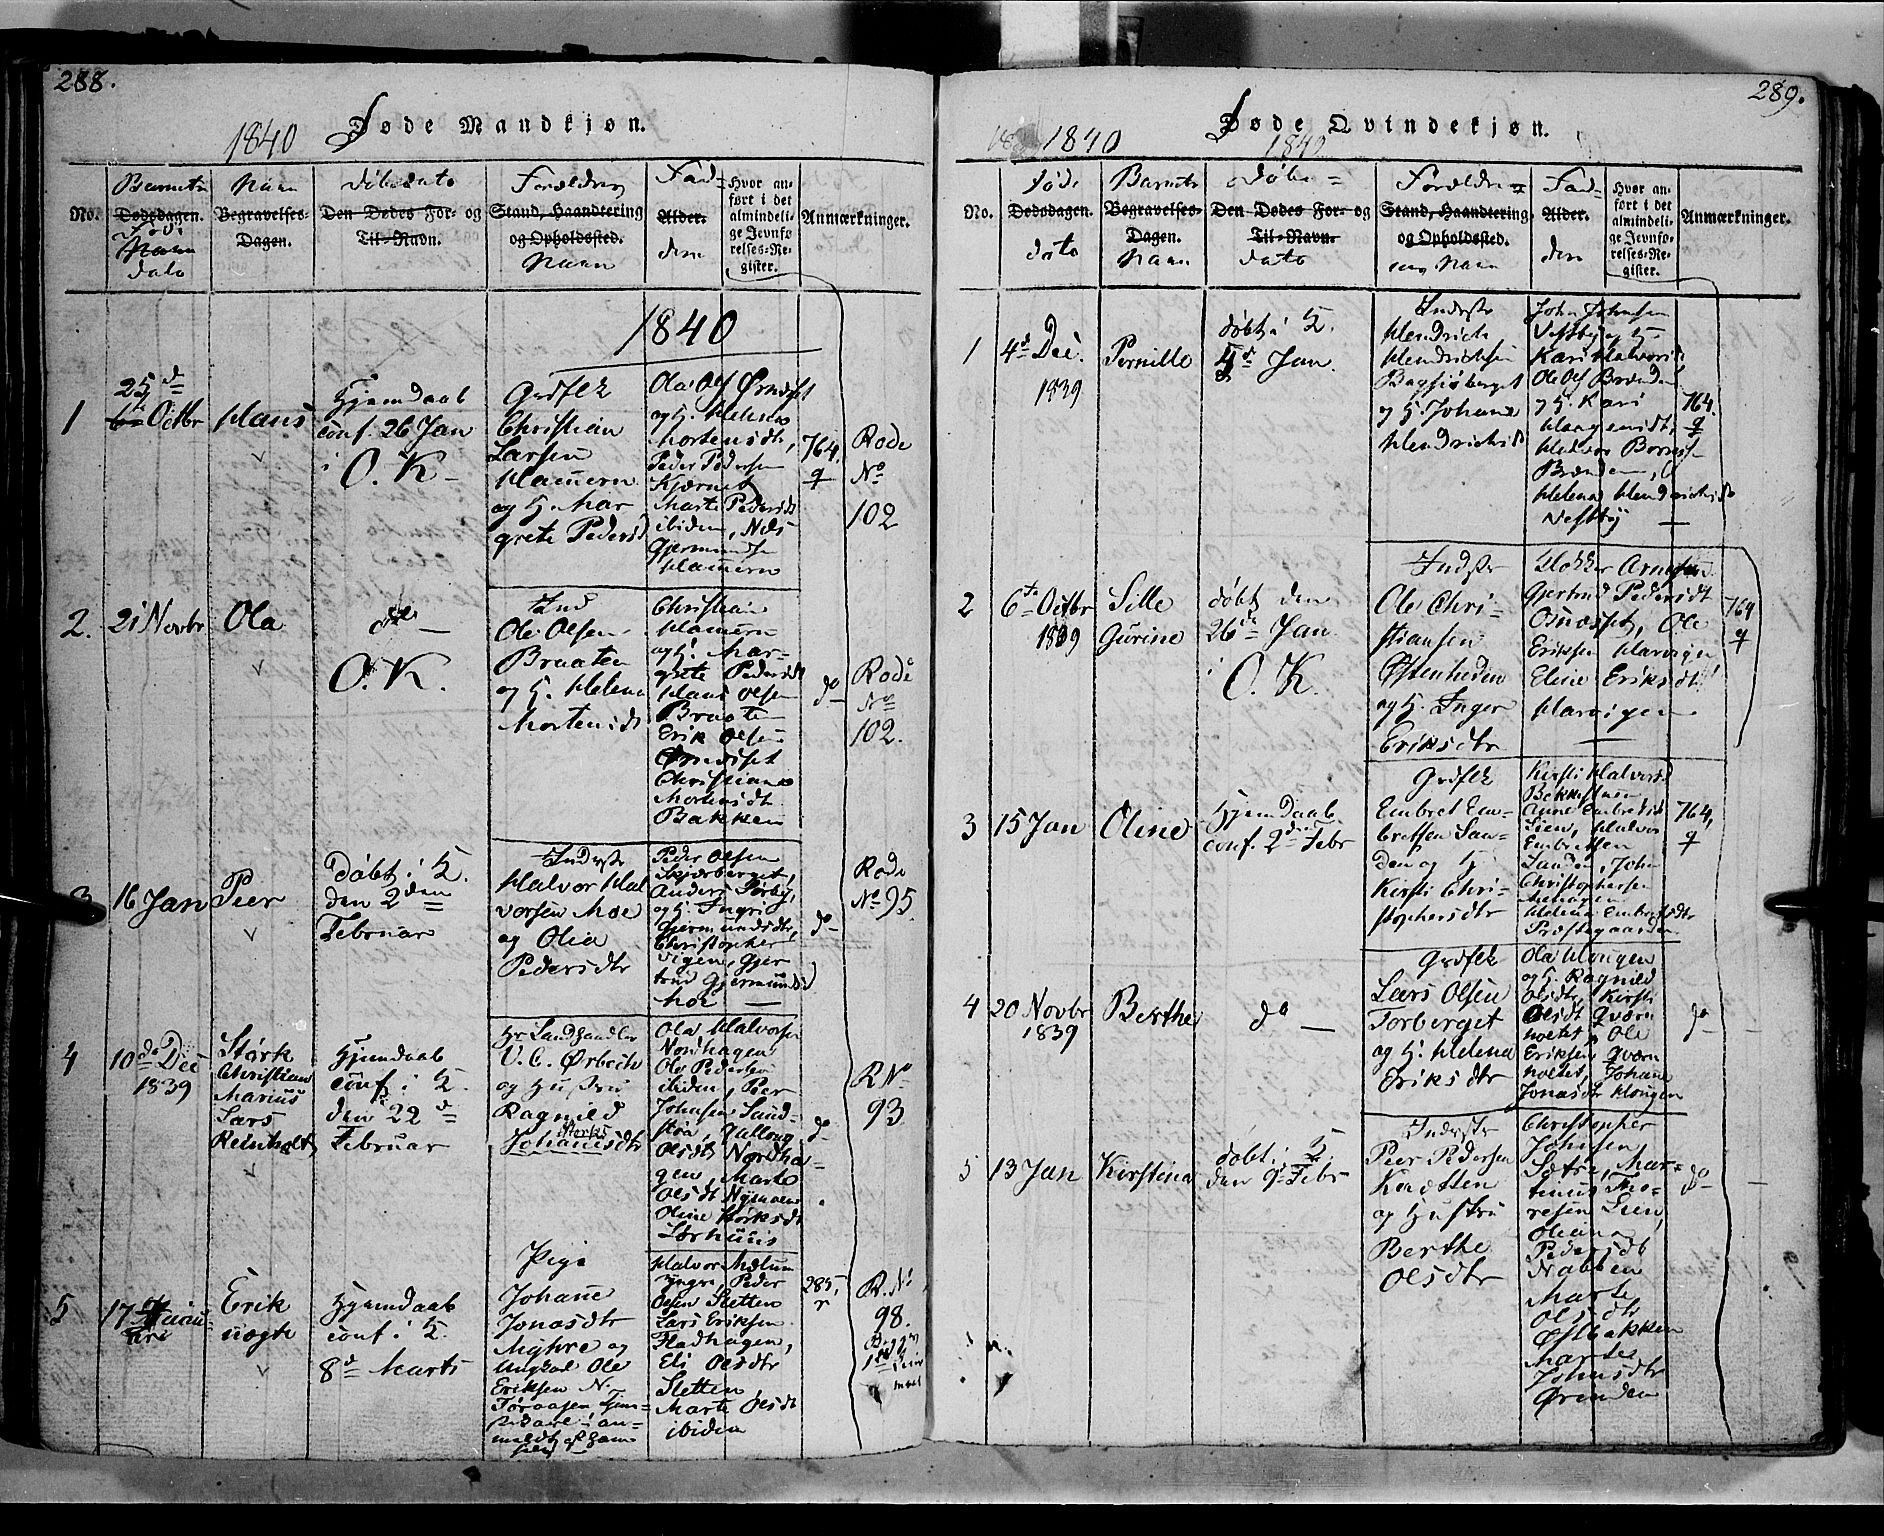 288.
1840 Døde Mandkjøn.
No.
Barnets
Dødsdagen.
Føds
Navn
dato
Navn
Begravelses-
Dagen.
Døbedato
Den Dødes For- og
Til-Navn.
Forældres
Stand, Haandtering
og Opholdssted.
Navn
Fad-
Alder.
dere
Hvor an-
ført i det
almindeli-
ge Jevnfø-
relses-Re-
gister.
Anmærkninger.
1840
1
25de
Octbr
Hans
Hjemdaab
conf. 26 Jan
i
O. K
Grdflk
Christian
Larsen
Hammern
og H. Mar
grete Pedersd
Ola Ols Ørnæset
og H. Helena
Mortensdtr,
Peder Pedersen
Kjernet
Marte Pedersdt
ibiden, Nils
Gjermundse
Hammern
764.
q
Rode
No
102
2.
21 Novbr
Ola
do
O. K.
Ind
Ole Olsen
Braaten
og H. Helena
Mortensdt
Christian
Hamern
og H. Mar-
grete Pedersdt
Hans Olsen
Braaten
Erik Olsen
Ørnæset
Christiane
Mortensdt
Bakken
do
Rode
No
102.
3
16 Jan
Peer
Døbt i H.
den 2den
Februar
Inderste
Halvor Hal
vorsen Moe
og Olea
Pedersdtr
Peder Olsen
Skjærberget,
Anders Sørby,
og H. Ingri
Gjermundsdtr,
Christopher
Vigen, Gjer
trud Gjermundsd
Moe
do
Rode
No 95.
4
10de Dec
1839
Størk
Christian
Marius
Lars
Reinholt
Hjemdaab
conf. i H.
den 22d
Februar
Hr Landhandler
V. C. Ørbech
og Hustru
Ragnild
Størks
Johannesdtr
Ola Halvorsen
Nordhagen
Ola Pedersen
ibiden, Peer
Johnsen Sand-
stra,
Olsdt Nordha-
gen, Marte
Olsdt Nymoen
Oline Størksdt
Sørhuus
do
R No
93
5
17de
Erik
uægte
Hjemdaab
conf. i H.
8d Marts
Pige
Johane
Jonasdtr
Myhre og
Ungkarl Ole
Eriksen N.
Halvor Melum
Yngre, Peder
Olsen Sletten
Lars Eriksen
Fladhagen,
Eli Olsdtr
Sletten
Marte Olsdt
ibiden
285,
r
R. No
98.
289.
1840 Døde Qvindekjøn.
1840
No.
Føde
Dødsdagen.
dato
Barnets
Begravelses-
Dagen.
Navn
Døbe-
Den Dødes For- og
Til-Navn.
dato
Forældrenes
Stand, Haandtering
og Opholdssted.
Navn
Fad-
Alder.
dere
Hvor an-
ført i det
almindeli-
ge Jevnfø-
relses-Re-
gister.
Anmærkninger.
1
4d Dec.
1839
Pernille
døbt i H.
5d Jan.
Inderste
Hendrich
Hendrichsen
Bagsiøberget
og H. Johane
Hendrichsd
John Johnsen
Vestby og H.
Kari Halvorsd
Ole Ols Brænden
og H. Kari
Haagensdt,
Brænden,
Helena Hendrichsdt
Vestby
764.
q
2
6te Octbr
1839
Sille
Gurine
døbt den
26de Jan
i
O. K.
Indste
Ole Chri-
stiansen
Østenheden
og H. Inger
Eriksdtr
Arnesen
Gjertrud Pedersdt
Osnesset, Ole
Eriksen Harvigen
Eline Eriksdt
Harvigen
764
q
3
15 Jan
Oline
Hjemdaab
conf. 2den Febr
Grdflk
Embret Em-
bretsen San-
den og H
Kirsti Chri-
stophersdtr
Kirsti Halvorsd
Bekkestuen
Anne Embretsd
Lien, Halvor
Embretsen
Sanden, John
Christophersen
Helena Embretsdtr
Præstegaarden
764,
q
4
20 Novbr
1839
Berthe
do
Grdflk
Lars Olsen
Torberget
og H. Helena
Eriksdtr
Ola Hougen
og H. Ragnild
Olsdtr, Kirsti
Olsdt Qværn
noetet, Ole
Eriksen Qværn
noetet, Johane
Jonasdtr Hougen
do
5
13 Jan
Kirstina
døbt i H.
den 9d Febr
Inderste
Peer Pedersen
Knætten
og Hustru
Berthe
Olsdtr
Christopher
Johnsen
Sætre, Mar-
tinus Tho-
resen Lien,
Oleana
Pedersdt
Nabben
Marte
Olsdtr
Østbakken
Marte
Johnsdtr
Ørenden
do